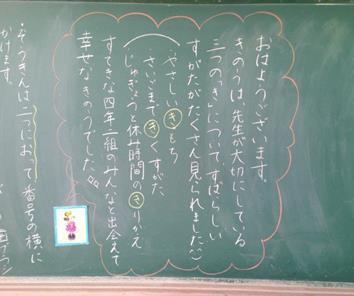 おはようございます。
きのうは、先生が大切にしている
三つの「き」について、すばらしい
すがたがたくさん見られました(^^)
やさしいきもち
・さいごまできくすがた
・じゅぎょうと休み時間のきりかえ
すてきな四年二組のみんなと出会えて
幸せなきのうでした。
・ぞうきんは二つにおって番号の横に
かけます。